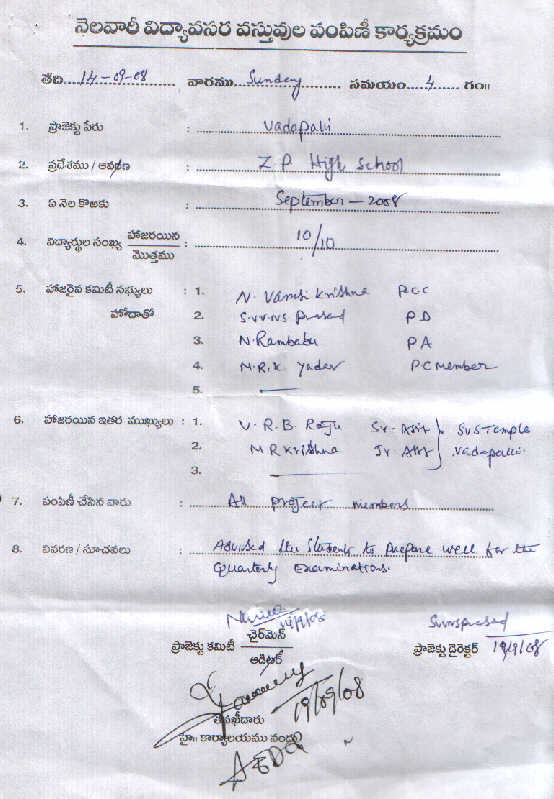 నెలవారీ విద్యావసర వస్తువుల పంపిణీ కార్యక్రమం
తేది....14-09-08.... వారము..Sunday.... సమయం....4.... గం॥
1. ప్రాజెక్టు పేరు : Vadapalli
2. ప్రదేశము / ఆవరణ : Z P High School
3. ఏ నెల కొఱకు : September - 2008
4. విద్యార్థుల సంఖ్య హాజరయిన / మొత్తము : 10/10
5. హాజరైన కమిటీ సభ్యులు : 1. N. Vamsi Krishna PCC
హోదాతో 2. S.V.V.N.S Prasad PD
3. N. Rambabu PA
4. M.R.K. Yadav PC Member
5. —
6. హాజరయిన ఇతర ముఖ్యులు : 1. V. R. B. Raju Sr. Asst } SVS Temple
2. M R Krishna Jr Asst } Vadapalli
3. —
7. పంపిణీ చేసిన వారు : All project members
8. వివరణ / సూచనలు : Advised the students to prepare well for the
Quarterly examinations.
14/9/08 Svvnsprasad
ప్రాజెక్టు కమిటీ చైర్‌మెన్ / ఆడిటర్ ప్రాజెక్టు డైరెక్టర్ 19/9/08
19/09/08
తనఖీదారు
హై॥ కార్యాలయము నందు)